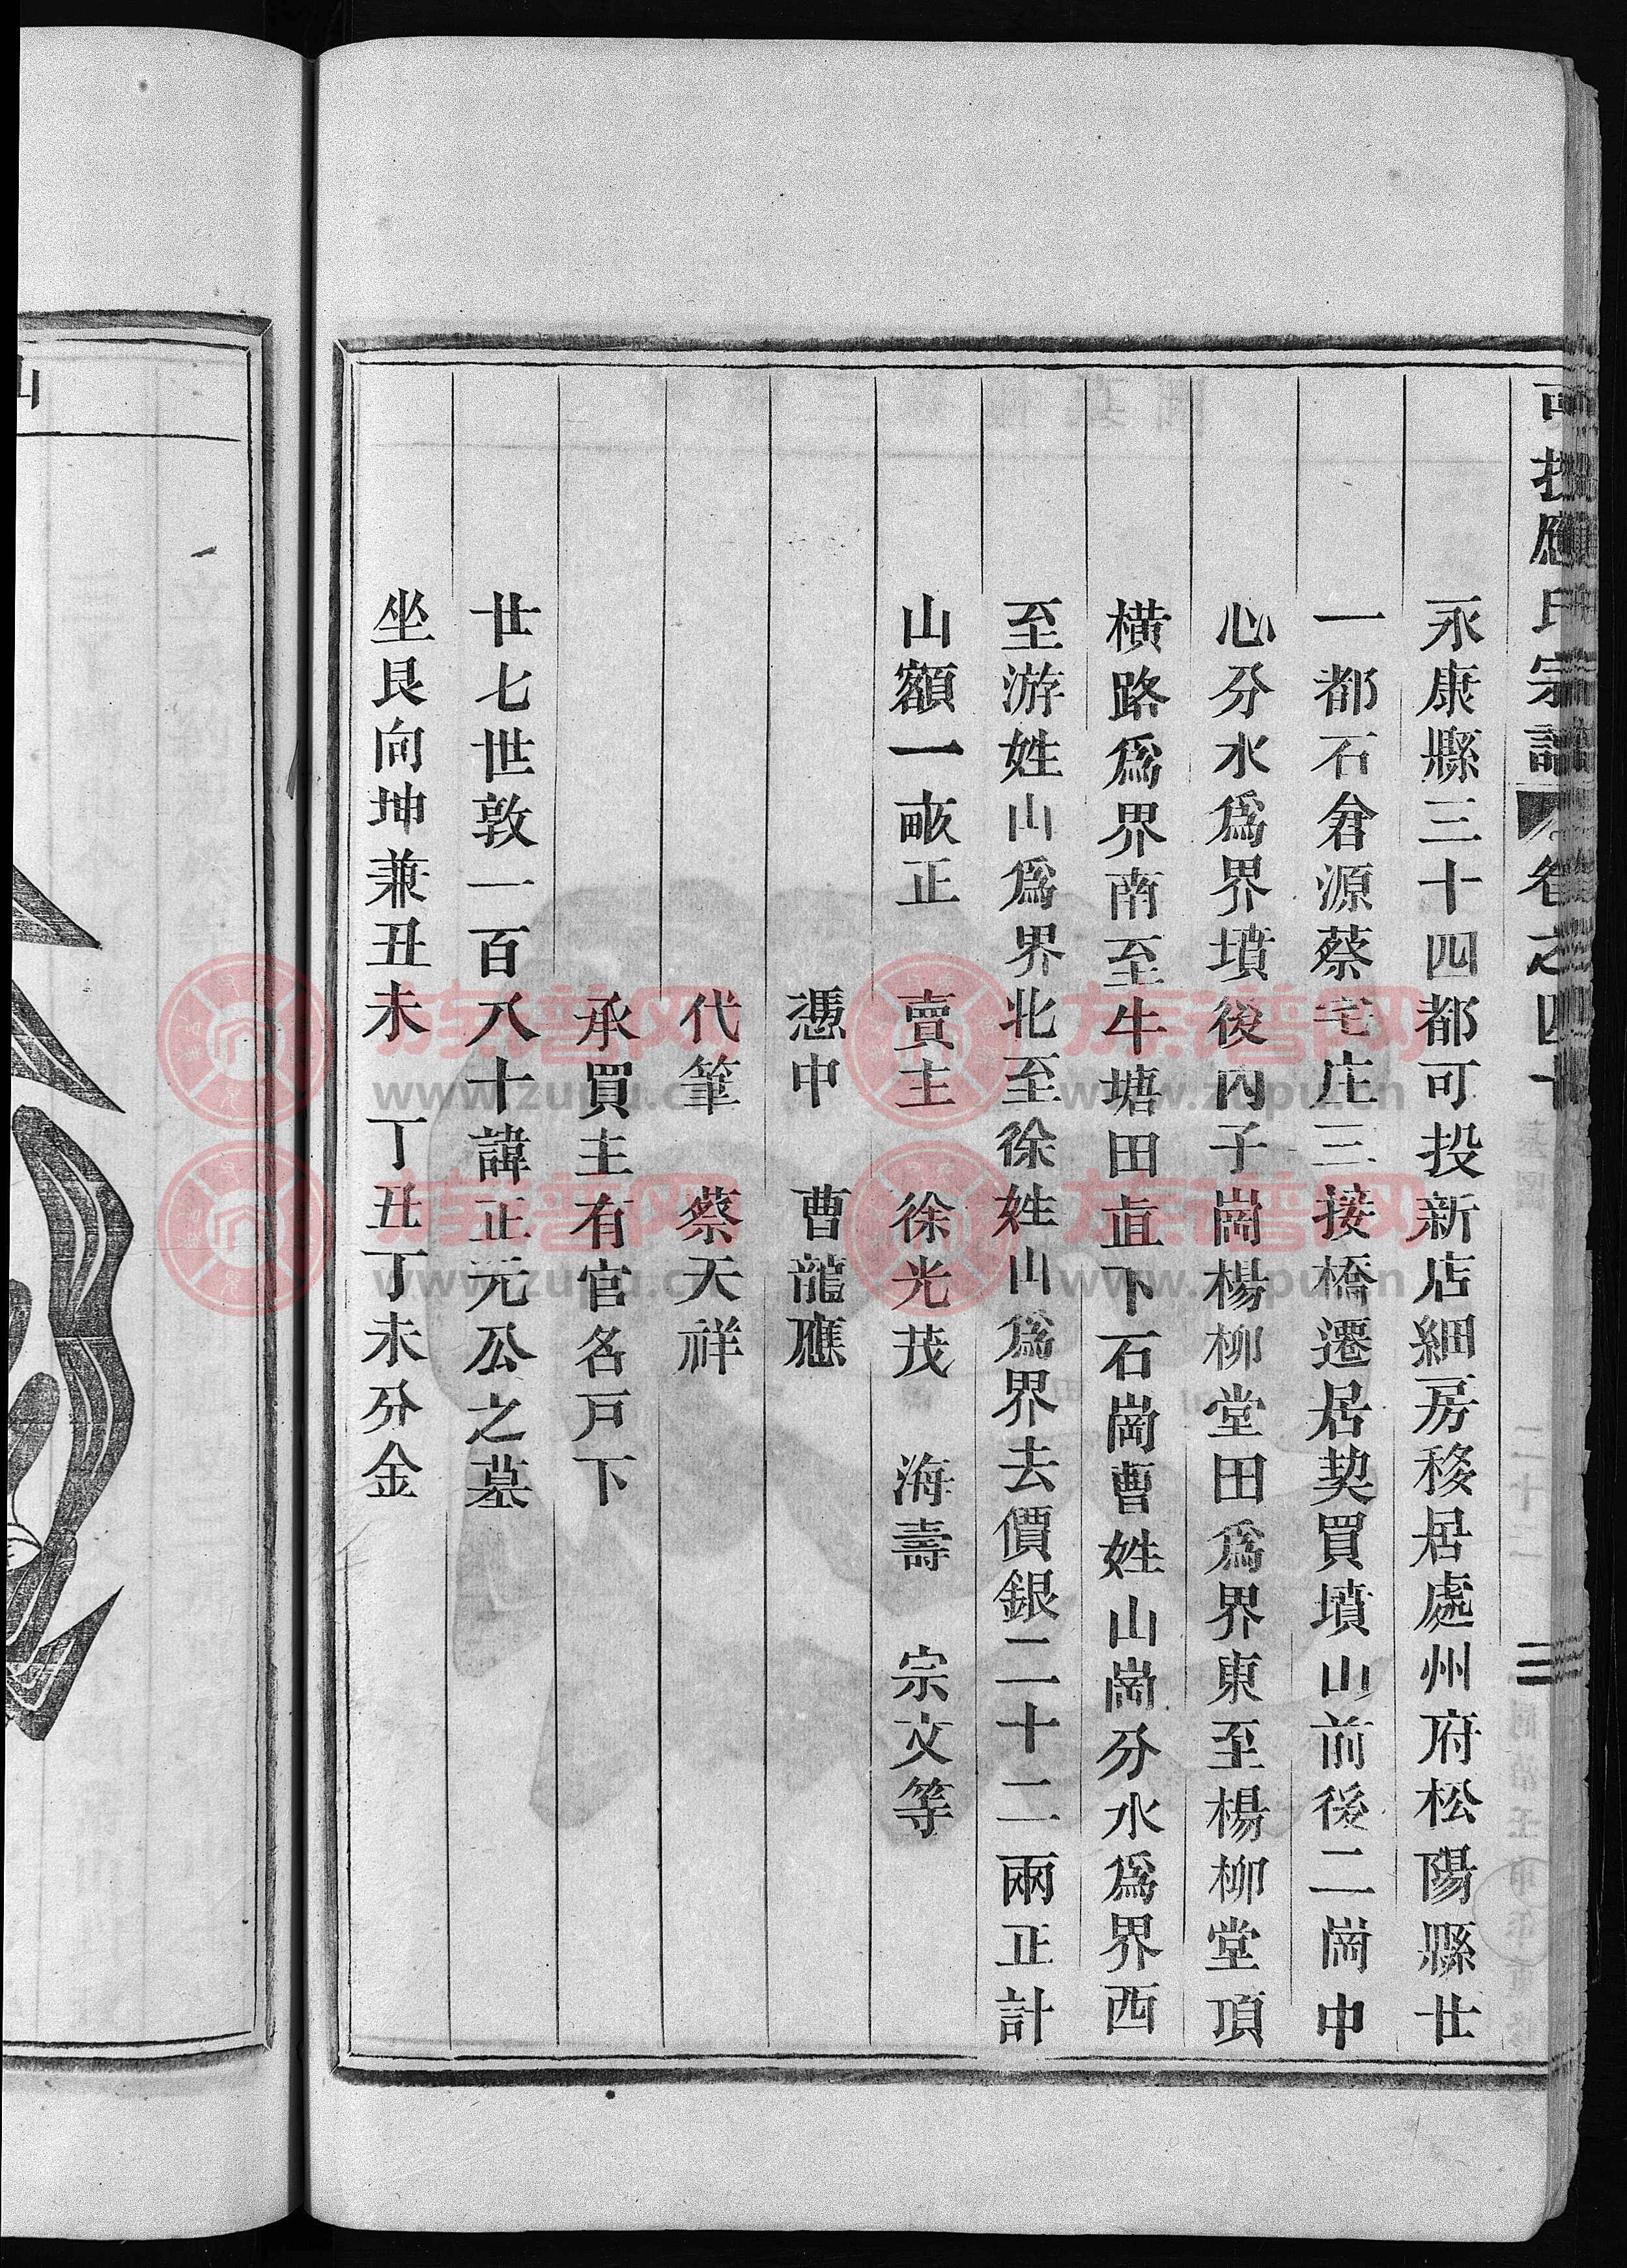 可投應氏宗譜 卷之四十
永康縣三十四都可投新店細房移居處州府松陽縣廿
一都石倉源蔡宅庄三接橋遷居契買墳山前後二崗中
心分水為界墳後內子崗楊柳堂田為界東至楊柳堂頂
橫路為界南至牛塘田直下石崗曹姓山崗分水為界西
至游姓山為界北至徐姓山為界去價銀二十二兩正計
山額一畝正 賣主 徐光茂 海壽 宗文等
憑中 曹龍應
代筆 蔡天祥
承買主有官名戶下
廿七世敦一百八十諱正元公之墓
坐艮向坤兼丑未 丁丑丁未分金
山
族譜网
www.zupu.cn
族譜网
www.zupu.cn
族譜网
www.zupu.cn
族譜网
www.zupu.cn